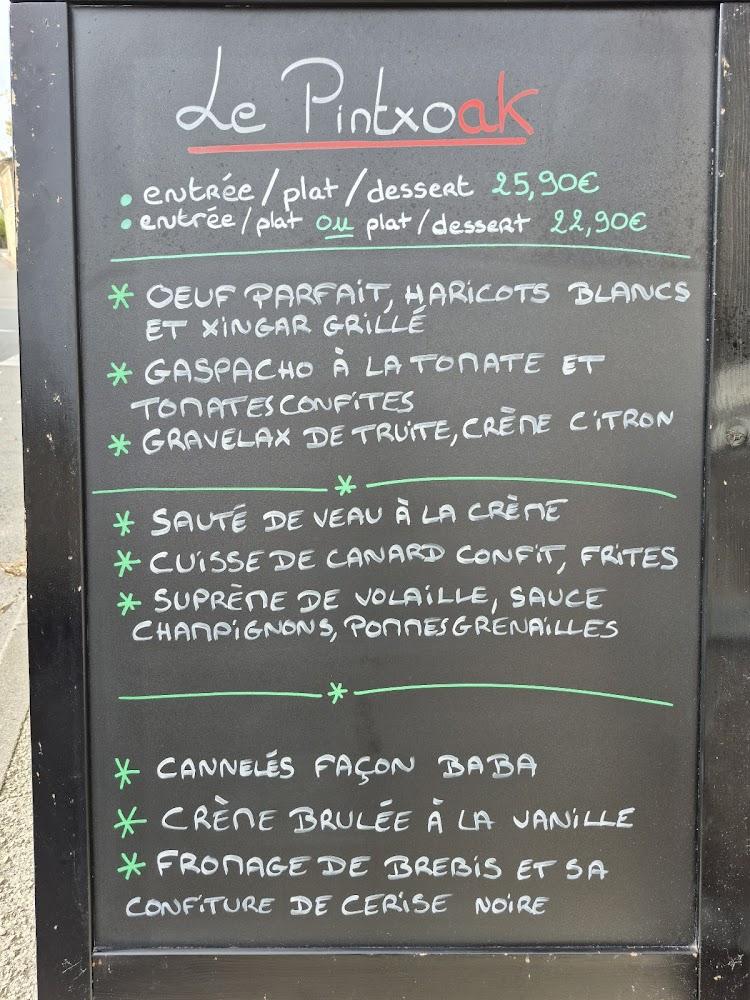 Le Pintxoak
• entrée/plat/dessert 25,90€
• entrée/plat ou plat/dessert 22,90€
* OEUF PARFAIT, HARICOTS BLANCS
ET XINGAR GRILLÉ
* GASPACHO À LA TOMATE ET
TOMATES CONFITES
* GRAVELAX DE TRUITE, CRÈME CITRON
*
* SAUTÉ DE VEAU À LA CRÈME
* CUISSE DE CANARD CONFIT, FRITES
* SUPRÈME DE VOLAILLE, SAUCE
CHAMPIGNONS, POMMES GRENAILLES
*
* CANNELÉS FAÇON BABA
* CRÈME BRULÉE À LA VANILLE
* FROMAGE DE BREBIS ET SA
CONFITURE DE CERISE NOIRE